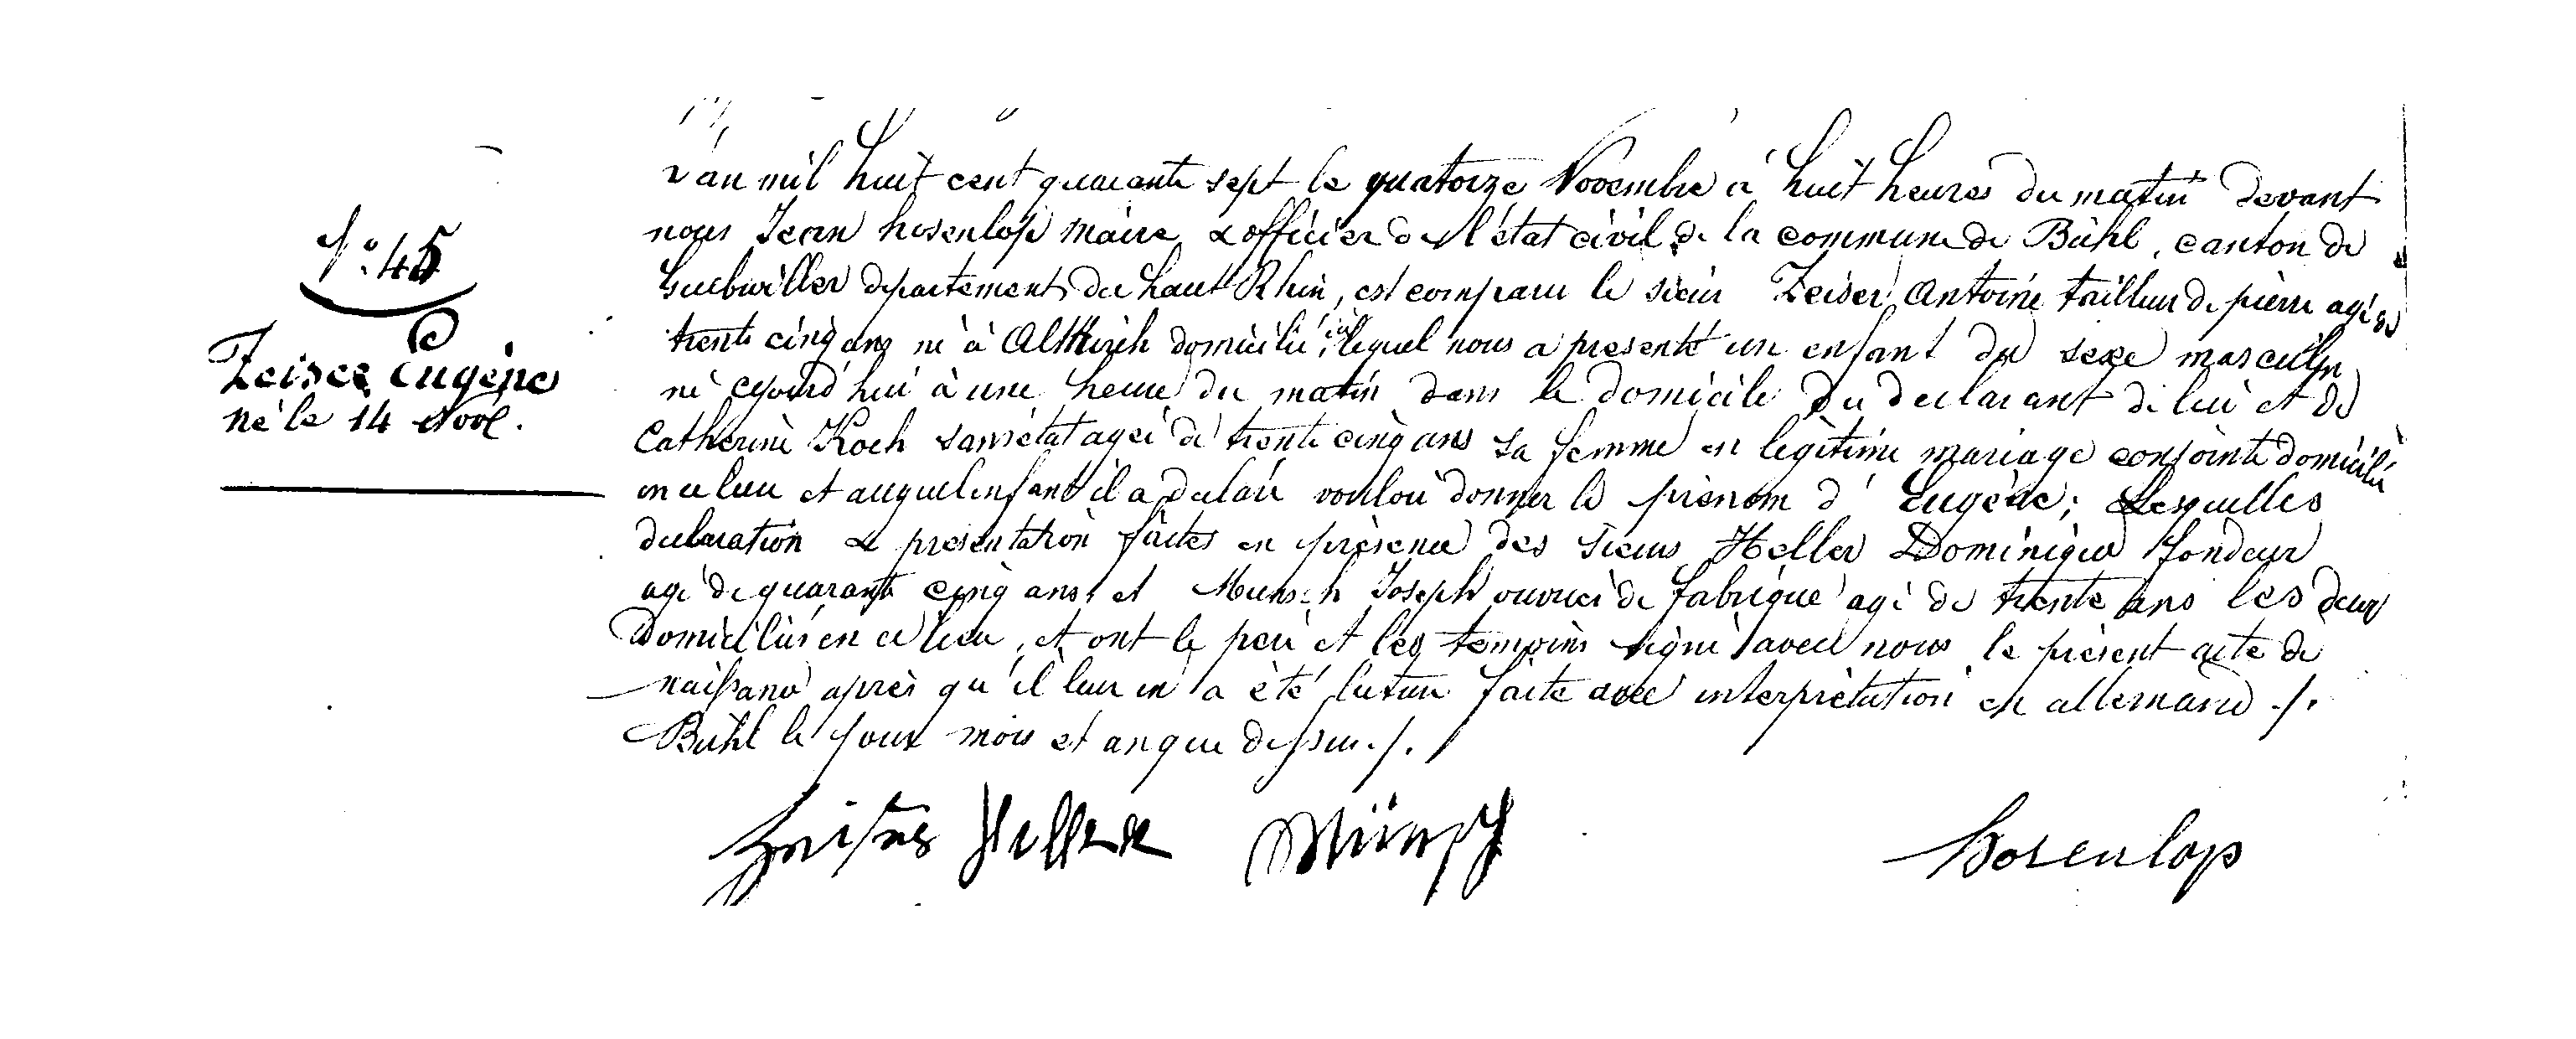 N° 45
Zeiser Eugène
né le 14 Nov.
L'an mil huit cent quarante sept le quatorze Novembre à huit heures du matin devant
nous Jean hosenlop maire & officier de l'état civil de la commune de Bühl, canton de
Guebwiller departement du haut Rhin, est comparu le sieur Zeiser Antoine tailleur de pierre agé de
trente cinq ans né à Altkirch domicilié ici lequel nous a presenté un enfant du sexe masculin
né cejourd'hui à une heure du matin dans le domicile du declarant de lui et de
Catherine Koch sans état agée de trente cinq ans sa femme en légitime mariage conjointe domicilié
en ce lieu et auquel enfant il a declaré vouloir donner le prénom d'Eugène; Lesquelles
declaration & présentation faites en présence des sieurs Heller Dominique fondeur
agé de quarante cinq ans et Munsch Joseph ouvrier de fabrique agé de trente ans les deux
Domiciliés en ce lieu, et ont le père et les temoins signé avec nous le présent acte de
naissance après qu'il leur en a été lecture faite avec interprétation en allemand ./.
Bühl le jour mois et an que dessus ./.
Zeiser Heller Münsch hosenlop